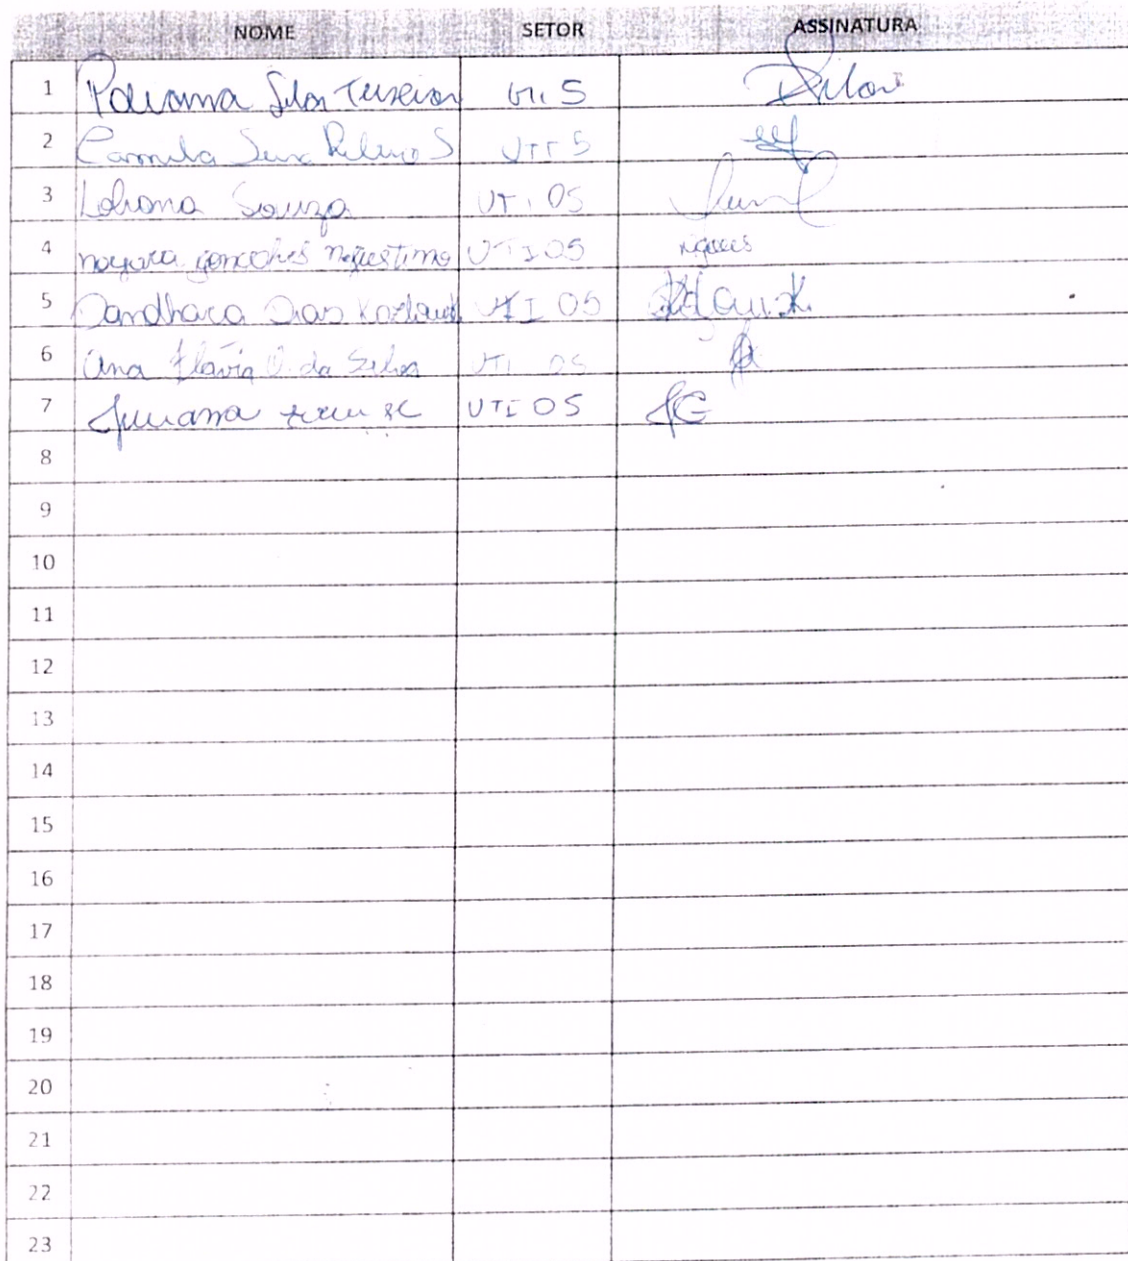 NOME SETOR ASSINATURA
1 Poliana Silva Teixeira UTI 5 PSilva
2 Camila Ribeiro S UTI 5
3 Lohana Souza UTI 05
4 nayara gonçalves UTI 05
5 Dandhara Dias UTI 05
6 Ana Flávia O. da Silva UTI 05
7 Juliana UTI 05 JG
8
9
10
11
12
13
14
15
16
17
18
19
20
21
22
23